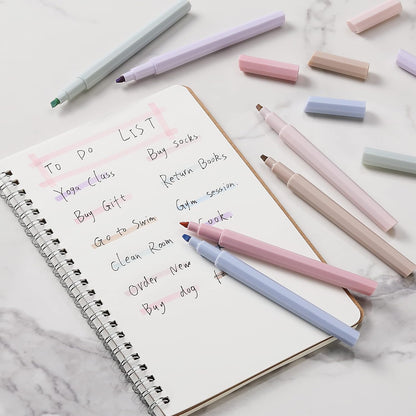 TO DO LIST
Yoga Class
Buy Gift
Go to Swim
Clean Room
Order New
Buy dog
Buy Socks.
Return Books
Gym session.
Cook.